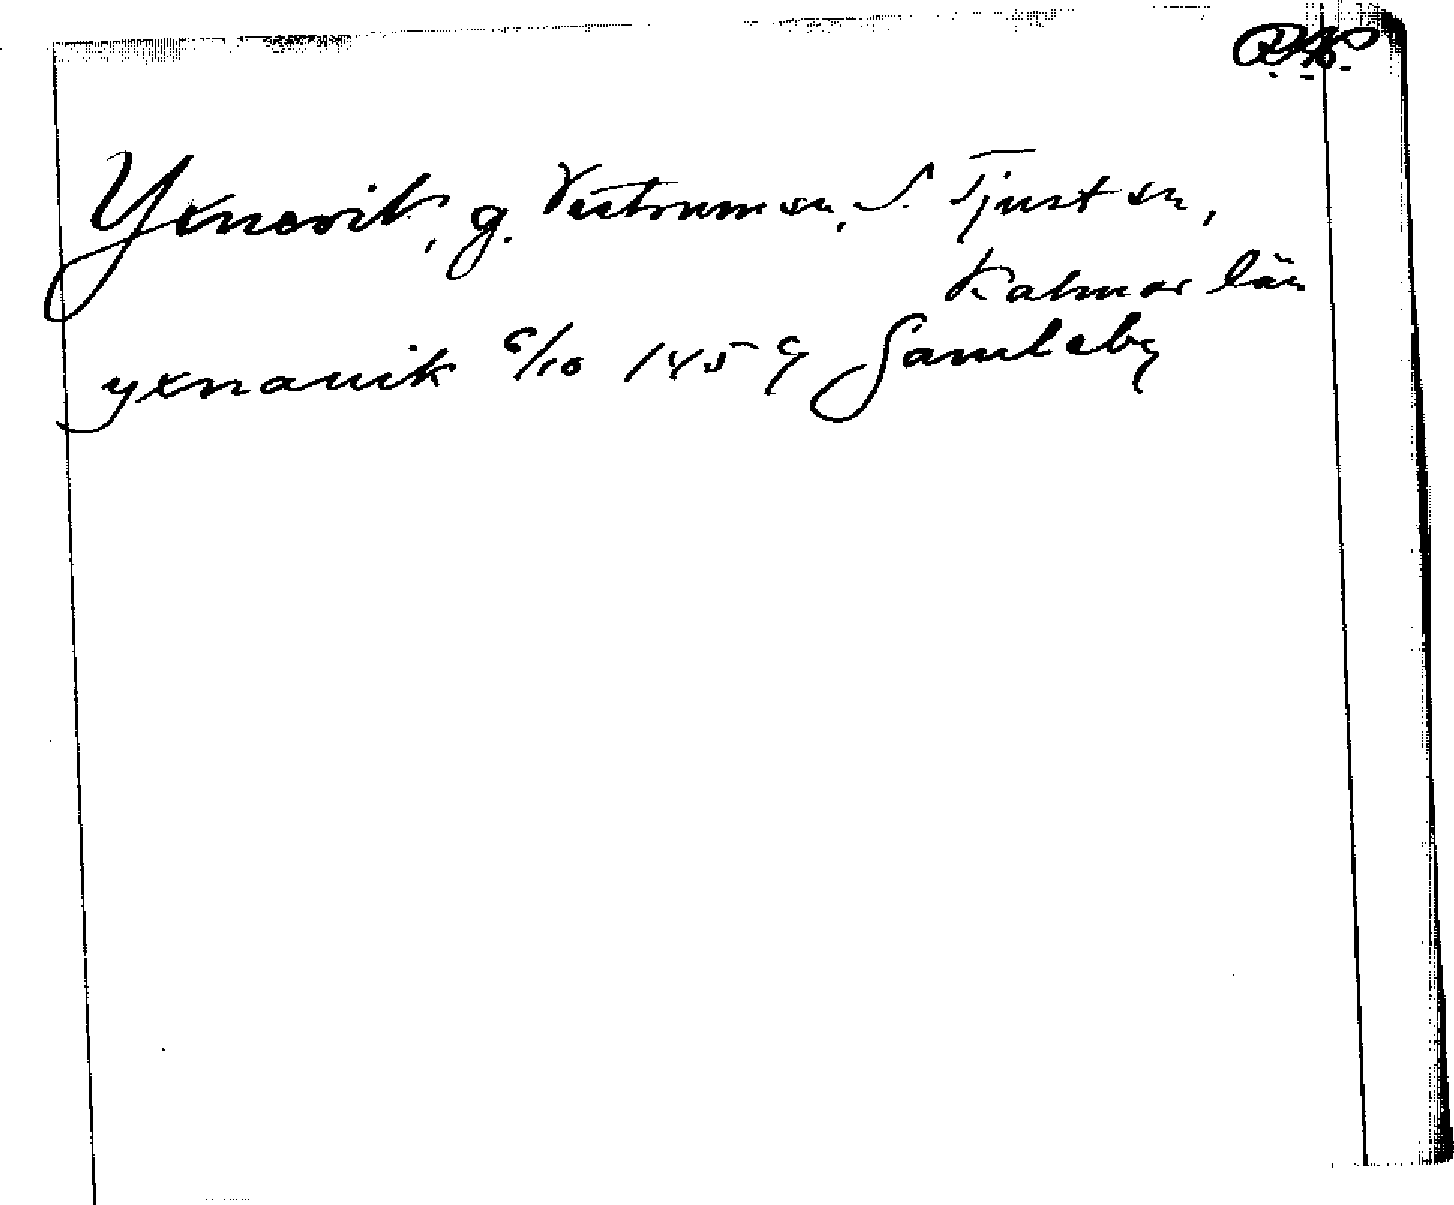 Yxnevik, g. Vestrum sn, S. Tjust sn,
Kalmar län
yxnauik 6/10 1459 Gamleby